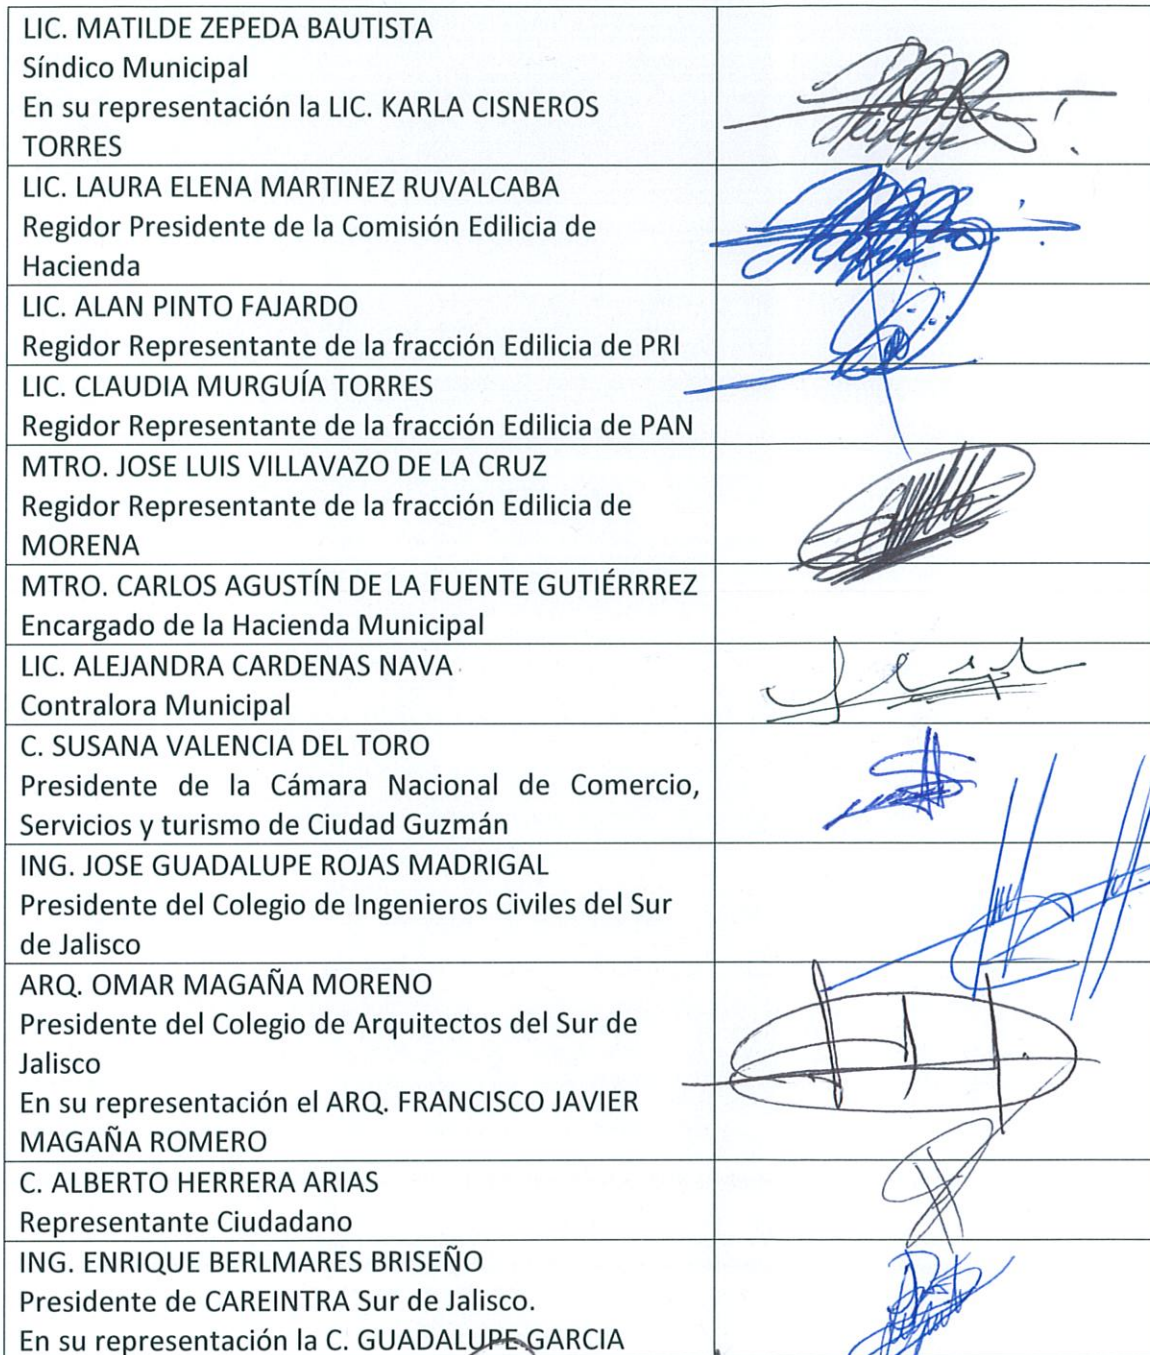 LIC. MATILDE ZEPEDA BAUTISTA
Síndico Municipal
En su representación la LIC. KARLA CISNEROS
TORRES
LIC. LAURA ELENA MARTINEZ RUVALCABA
Regidor Presidente de la Comisión Edilicia de
Hacienda
LIC. ALAN PINTO FAJARDO
Regidor Representante de la fracción Edilicia de PRI
LIC. CLAUDIA MURGUÍA TORRES
Regidor Representante de la fracción Edilicia de PAN
MTRO. JOSE LUIS VILLAVAZO DE LA CRUZ
Regidor Representante de la fracción Edilicia de
MORENA
MTRO. CARLOS AGUSTÍN DE LA FUENTE GUTIÉRRREZ
Encargado de la Hacienda Municipal
LIC. ALEJANDRA CARDENAS NAVA
Contralora Municipal
C. SUSANA VALENCIA DEL TORO
Presidente de la Cámara Nacional de Comercio,
Servicios y turismo de Ciudad Guzmán
ING. JOSE GUADALUPE ROJAS MADRIGAL
Presidente del Colegio de Ingenieros Civiles del Sur
de Jalisco
ARQ. OMAR MAGAÑA MORENO
Presidente del Colegio de Arquitectos del Sur de
Jalisco
En su representación el ARQ. FRANCISCO JAVIER
MAGAÑA ROMERO
C. ALBERTO HERRERA ARIAS
Representante Ciudadano
ING. ENRIQUE BERLMARES BRISEÑO
Presidente de CAREINTRA Sur de Jalisco.
En su representación la C. GUADALUPE GARCIA